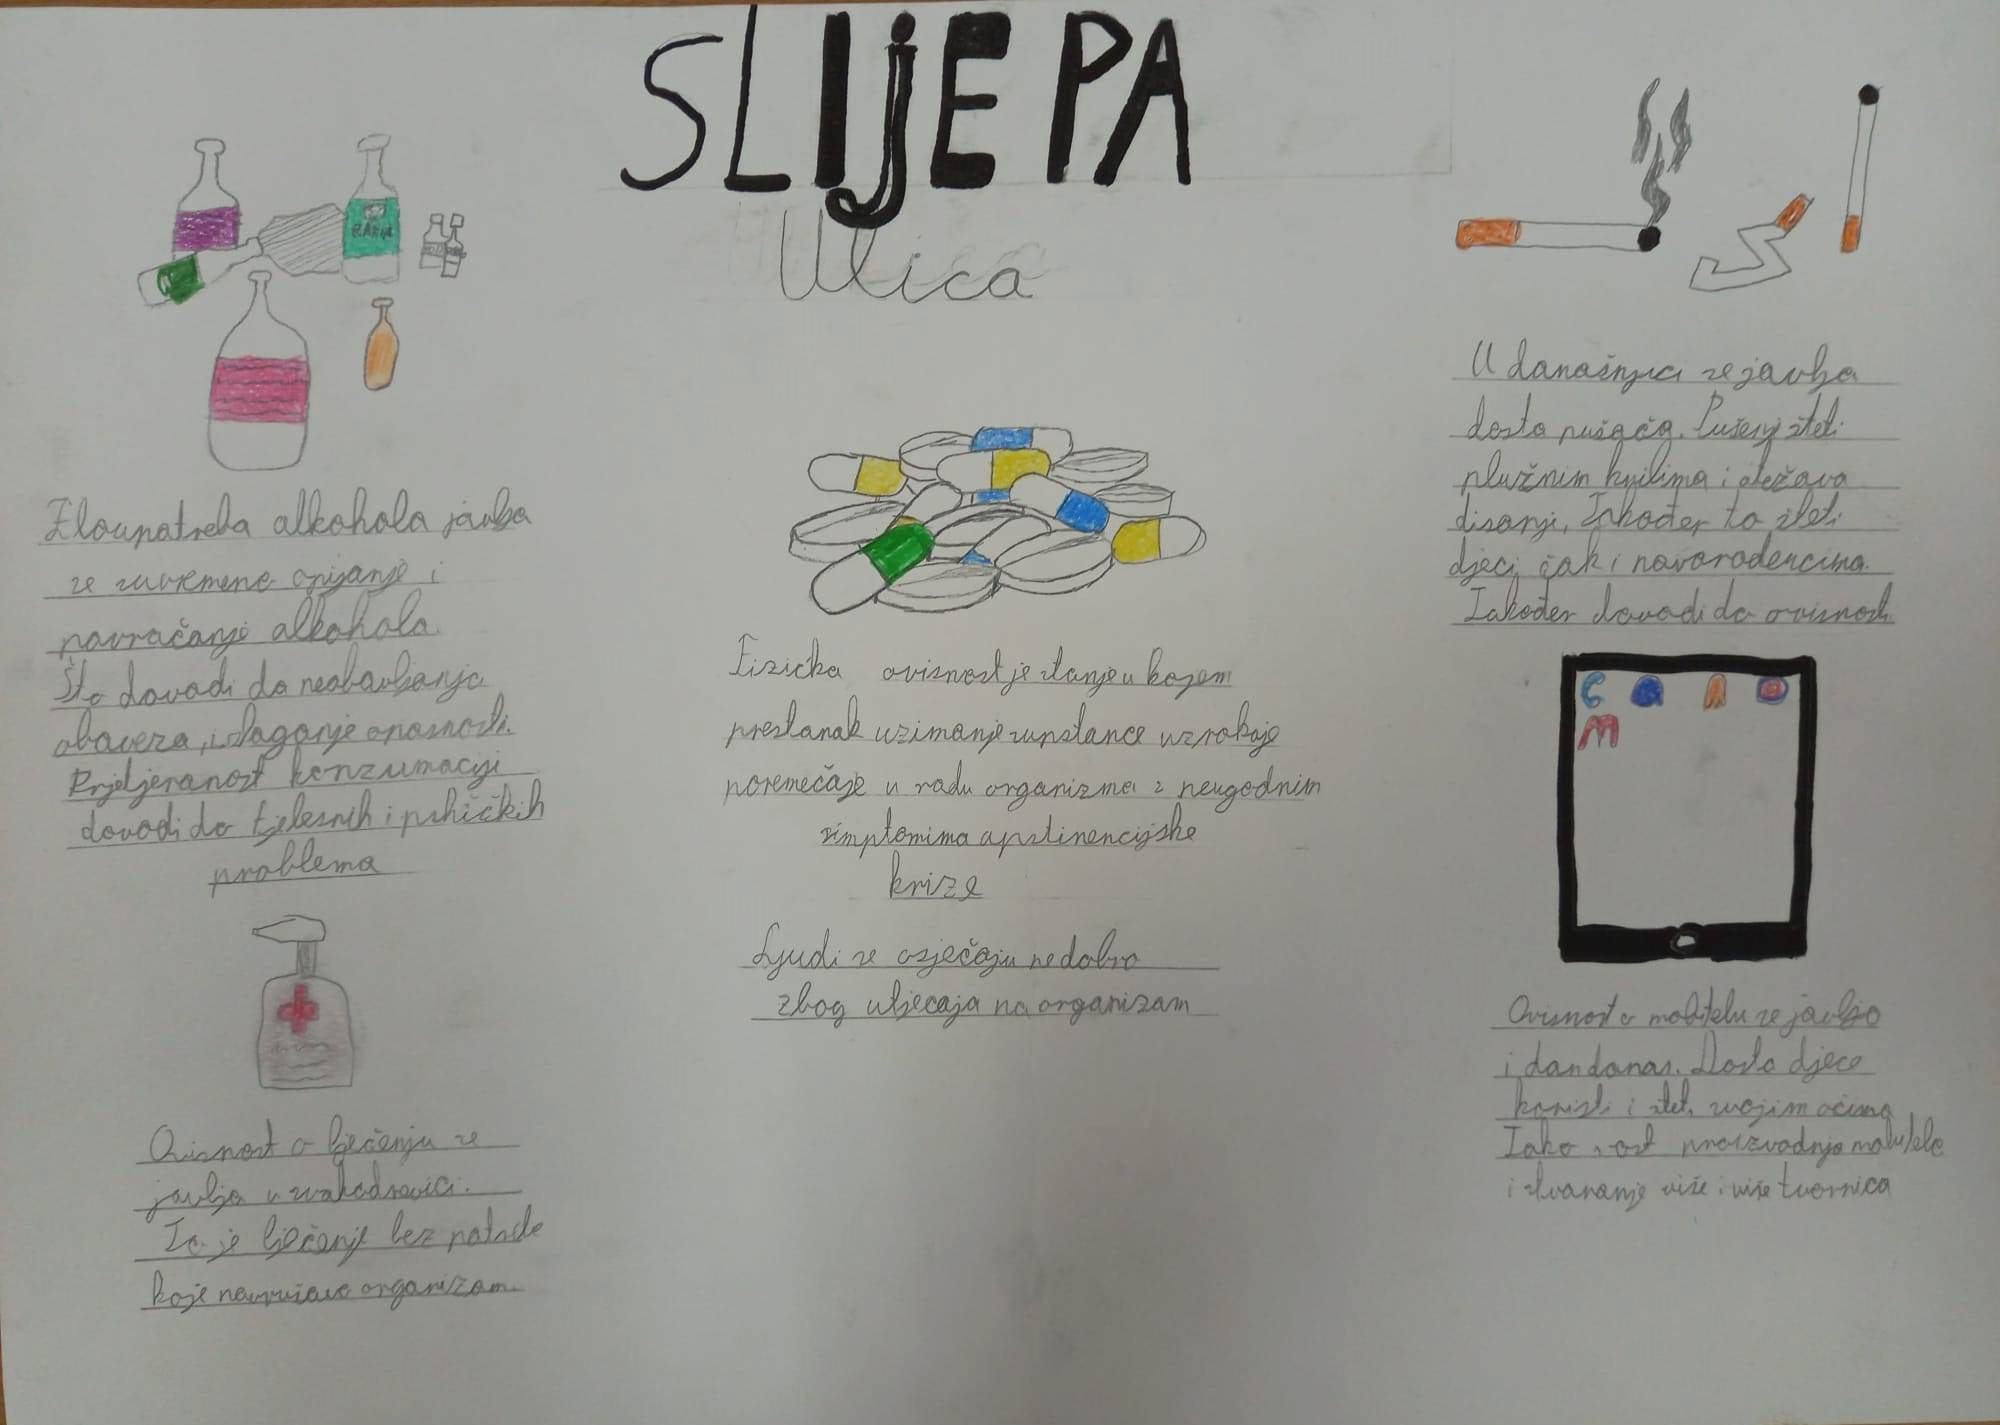 SLIJEPA
Ulica
RAKIJA
Zloupotreba alkohola javlja
se suvremeno opijanje i
navraćanje alkohola.
Što dovodi do neobavljanja
obaveza, izlaganje opasnosti.
Prjetjeranost konzumaciji
dovodi do tjelesnih i psihičkih
problema
Ovisnost o lječenju se
javlja u svakodnevici.
To je lječenje bez potrebe
koje narušava organizam.
Fizička ovisnost je stanje u kojem
prestanak uzimanje supstance uzrokoje
poremećaje u radu organizma s neugodnim
simptomima apstinencijske
krize
Ljudi se osjećaju nedobro
zbog utjecaja na organizam
U današnjici se javlja
dosta pušača. Pušenje šteti
plužnim krilima i otežava
disanje, Također to šteti
djeci, čak i novorođencima.
Također dovodi do ovisnosti.
Ovisnost o mobitelu se javlja
i dan danas. Dosta djece
koristi i šteti svojim očima
Tako rast proizvodnja mobitela
i stvaranje više i više tvornica